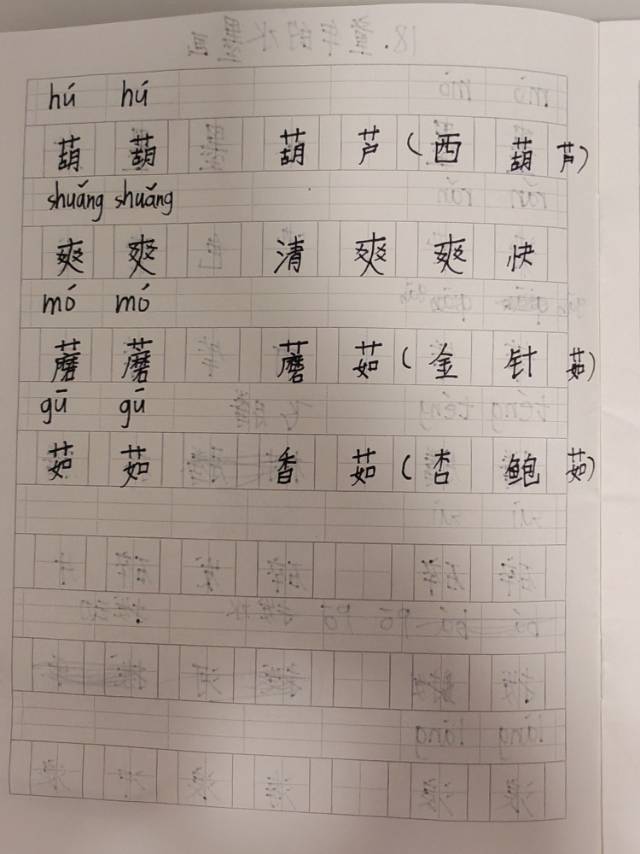 hú hú
葫 葫 葫 芦 (西 葫 芦)
shuǎng shuǎng
爽 爽 清 爽 爽 快
mó mó
蘑 蘑 蘑 菇 (金 针 菇)
gū gū
菇 菇 香 菇 (杏 鲍 菇)